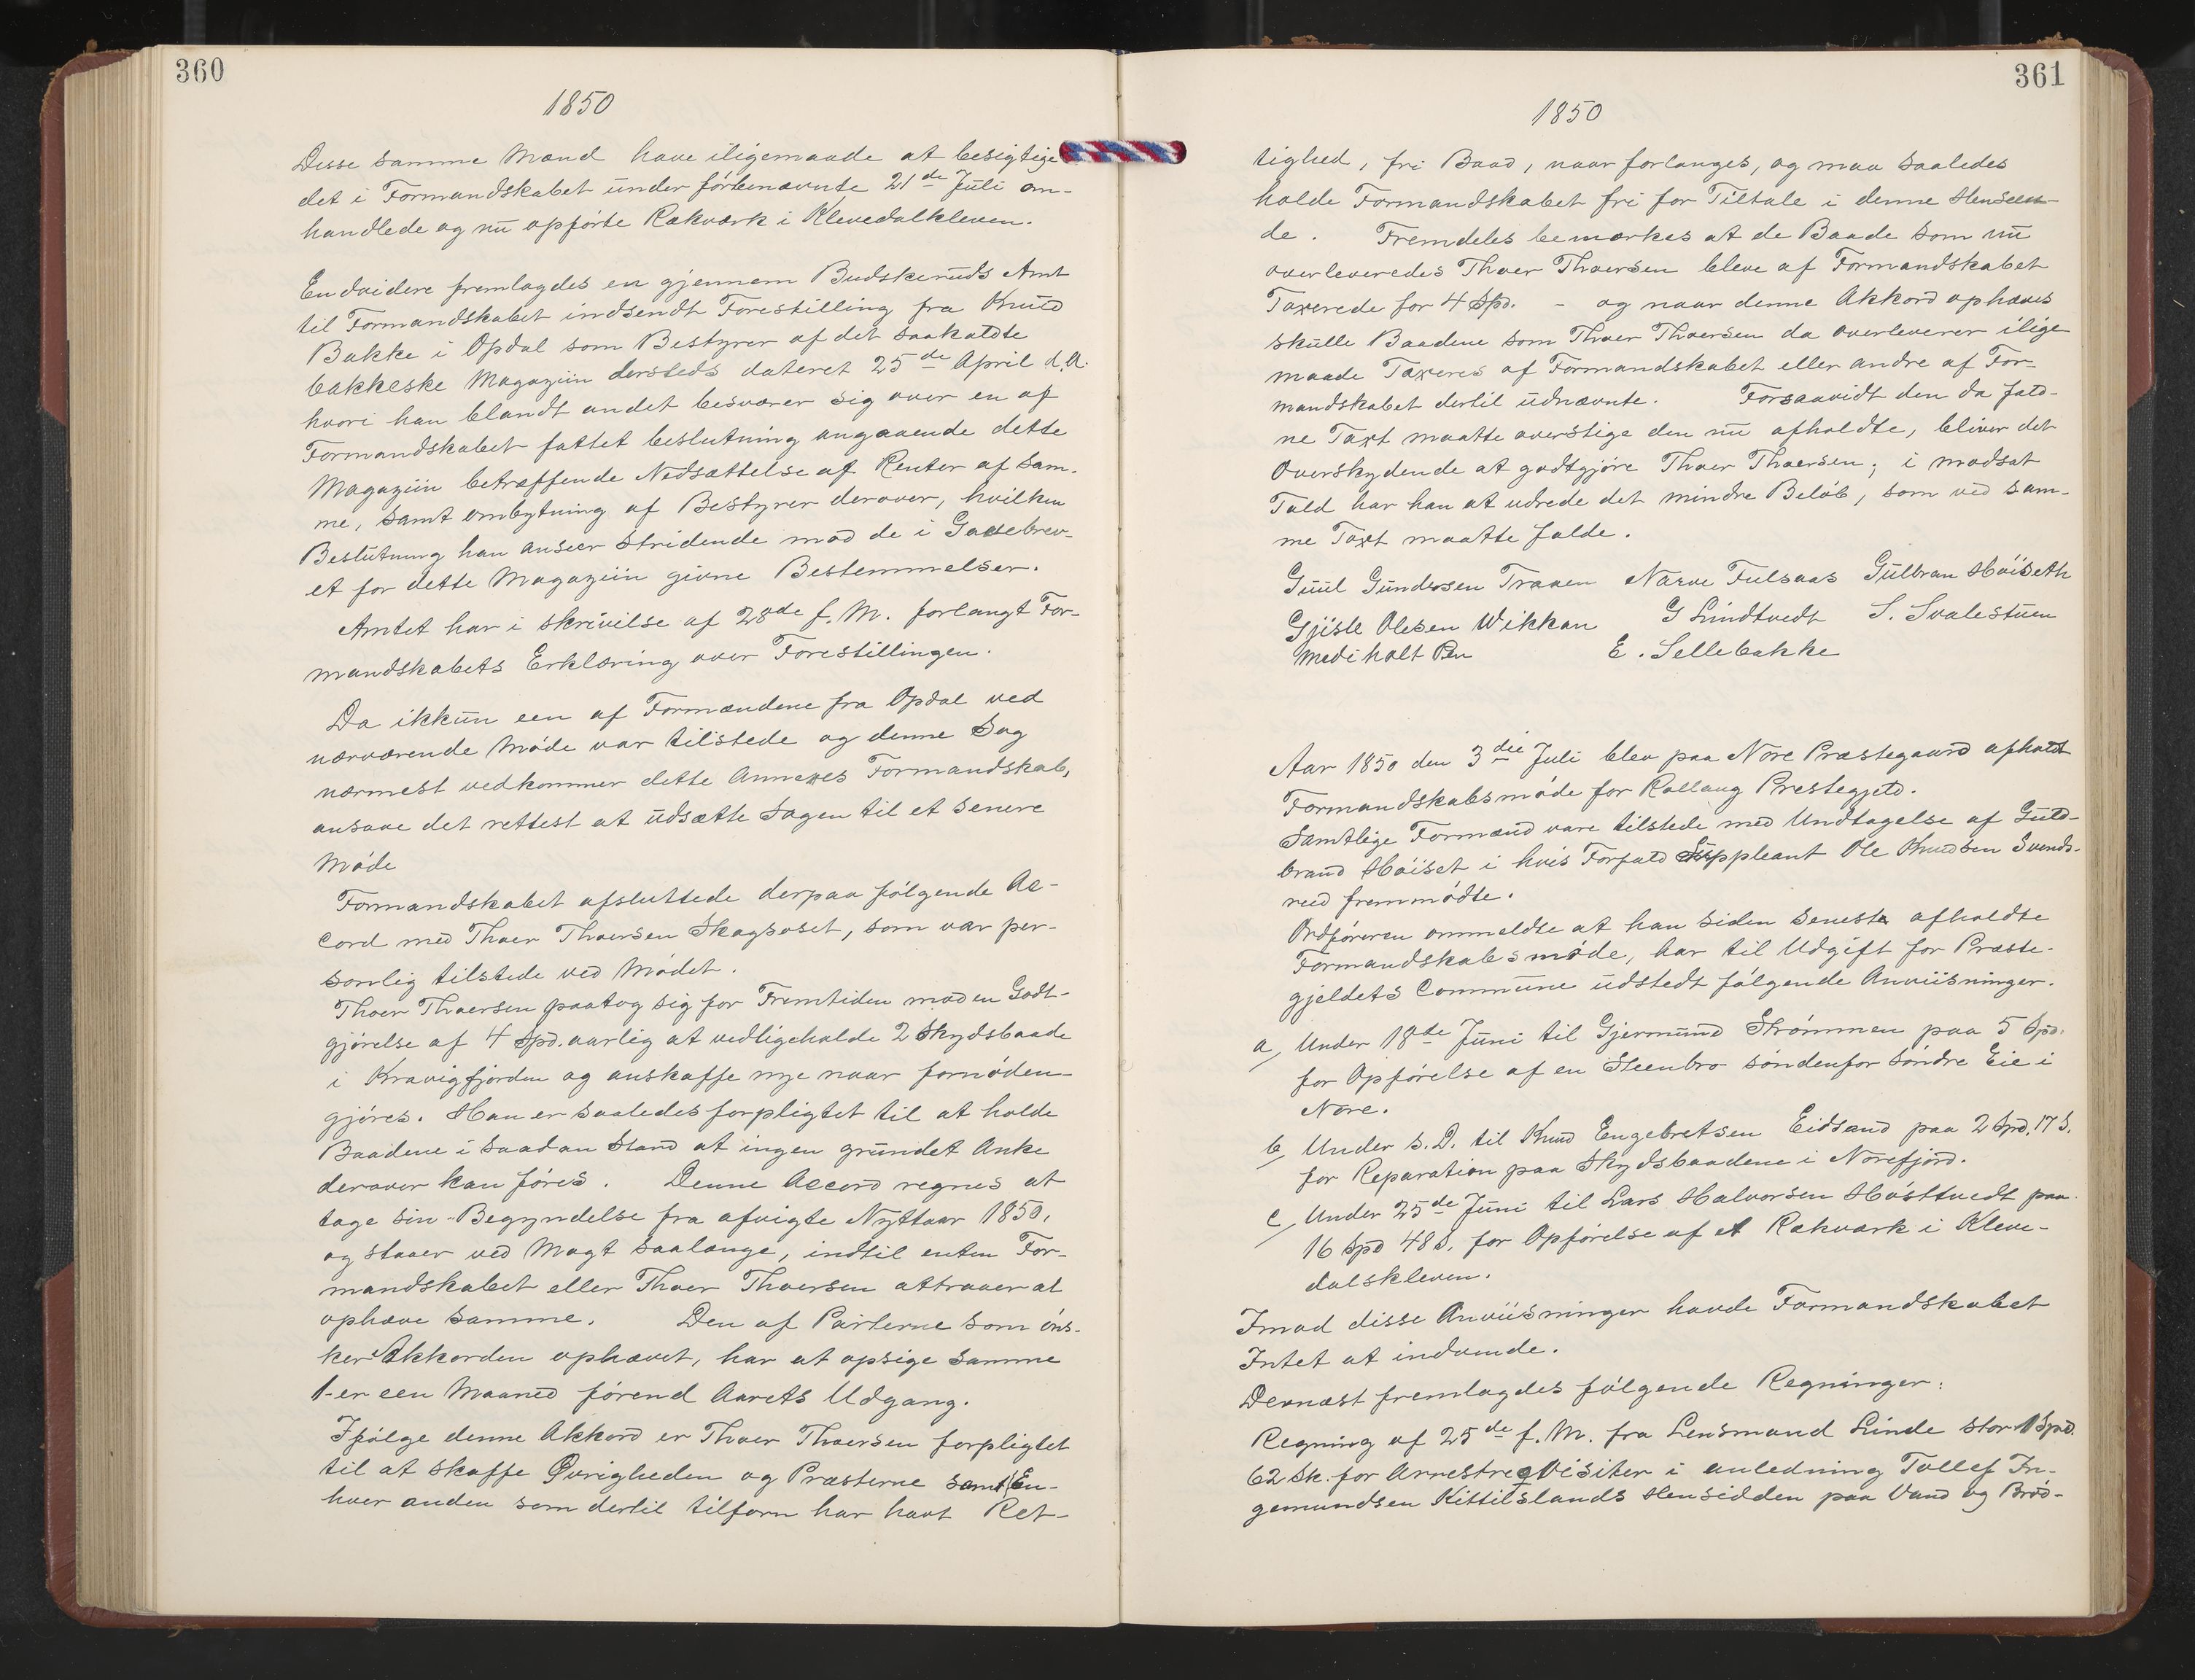 360
1850
Disse samme Mænd have iligemaade at besigtige
det i Formandskabet under förbenævnte 21de Juli om-
handlede og nu opförte Rækværk i Klevedalkleven.
Endvidere fremlagdes en gjennem Budskeruds Amt
til Formandskabet indsendt Forestilling fra Knud
Bakke i Opdal som Bestyrer af det saakaldte
bakkeske Magaziin dersteds dateret 25de April d.A.
hvori han blandt andet besværer sig over en af
Formandskabet fattet beslutning angaaende dette
Magaziin betræffende Nedsættelse af Renter af sam-
me, samt ombytning af Bestyrer derover, hvilken
Beslutning han anseer stridende mod de i Gavebrev-
et for dette Magaziin givne Bestemmelser.
Amtet har i skrivelse af 28de f. M. forlangt For-
mandskabets Erklæring over Forestillingen.
Da ikkun een af Formændene fra Opdal ved
nærværende Möde var tilstede og denne Sag
nærmest vedkommer dette Annexes Formandskab,
ansaae det rettest at udsætte Sagen til et senere
Möde
Formandskabet afsluttede derpaa fölgende Ac-
cord med Thoer Thoersen Skagsoset, som var per-
sonlig tilstede ved Mödet.
Thoer Thoersen paatog sig for Fremtiden mod en Godt-
gjörelse af 4 Spd. aarlig at vedligeholde 2 Skydsbaade
i Kravigfjorden og anskaffe nye naar fornöden-
gjöres. Han er saaledes forpligtet til at holde
Baadene i saadan Stand at ingen grundet Anke
derover kan föres. Denne Accord regnes at
tage sin Begyndelse fra afvigte Nyttaar 1850,
og staaer ved Magt saalænge, indtil enten For-
mandskabet eller Thoer Thoersen attraaer at
ophæve samme. Den af Parterne som öns-
ker Akkorden ophævet, har at opsige samme
1-er een Maaned förend Aarets Udgang.
Ifölge denne Akkord er Thoer Thoersen forpligtet
til at skaffe Øvrigheden og Præsterne samt En-
hver anden som dertil tilforn har havt Ret-
361
1850
tighed, fri Baad, naar forlanges, og maa saaledes
holde Formandskabet fri for Tiltale i denne Henseen-
de. Fremdeles bemærkes at de Baade som nu
overleveredes Thoer Thoersen bleve af Formandskabet
Taxerede for 4 Spd. - og naar denne Akkord ophæves
skulle Baadene som Thoer Thoersen da overleverer ilige
maade Taxeres af Formandskabet eller andre af For-
mandskabet dertil udnævnte. Forsaavidt den da fald-
ne Taxt maatte overstige den nu afholdte, bliver det
Overskydende at godtgjöre Thoer Thoersen; i modsat
Fald har han at udrede det mindre Belöb, som ved sam-
me Taxt maatte falde.
Guul Gundersen Traaen Narve Fulsaas Gulbran Höiseth
Gjisle Olesen Wikkan G Lindtvedt S. Svalestuen
med i holt Pen E. Sellebakke
Aar 1850 den 3die Juli blev paa Nore Præstegaard afholdt
Formandskabsmöde for Rollaug Prestegjeld.
Samtlige Formænd vare tilstede med Undtagelse af Guld-
brand Höiset i hvis Forfald Suppleant Ole Knudsen Svends-
rud fremmödte.
Ordföreren ommeldte at han siden seneste afholdte
Formandskabsmöde, har til Udgift for Præste-
gjeldets Commune udstedt fölgende Anviisninger.
a, Under 18de Juni til Gjermund Strömmen paa 5 Spd.
for Opförelse af en Steenbro söndenfor söndre Eie i
Nore.
b, Under s. D. til Knud Engebretsen Eidsand paa 2 Spd. 17 s.
for Reparation paa Skydsbaadene i Norefjord.
c, Under 25de Juni til Lars Halvorsen Hösttvedt paa
16 Spd 48 s. for Opförelse af et Rækværk i Kleve-
dalskleven.
Imod disse Anviisninger havde Formandskabet
Intet at indvende.
Dernæst fremlagdes fölgende Regninger:
Regning af 25de f. M. fra Lensmand Linde stor 1 Spd.
62 Sk. for Arrestreqvisiter i anledning Tollef In-
gemundsen Kittilslands Hensidden paa Vand og Bröd-